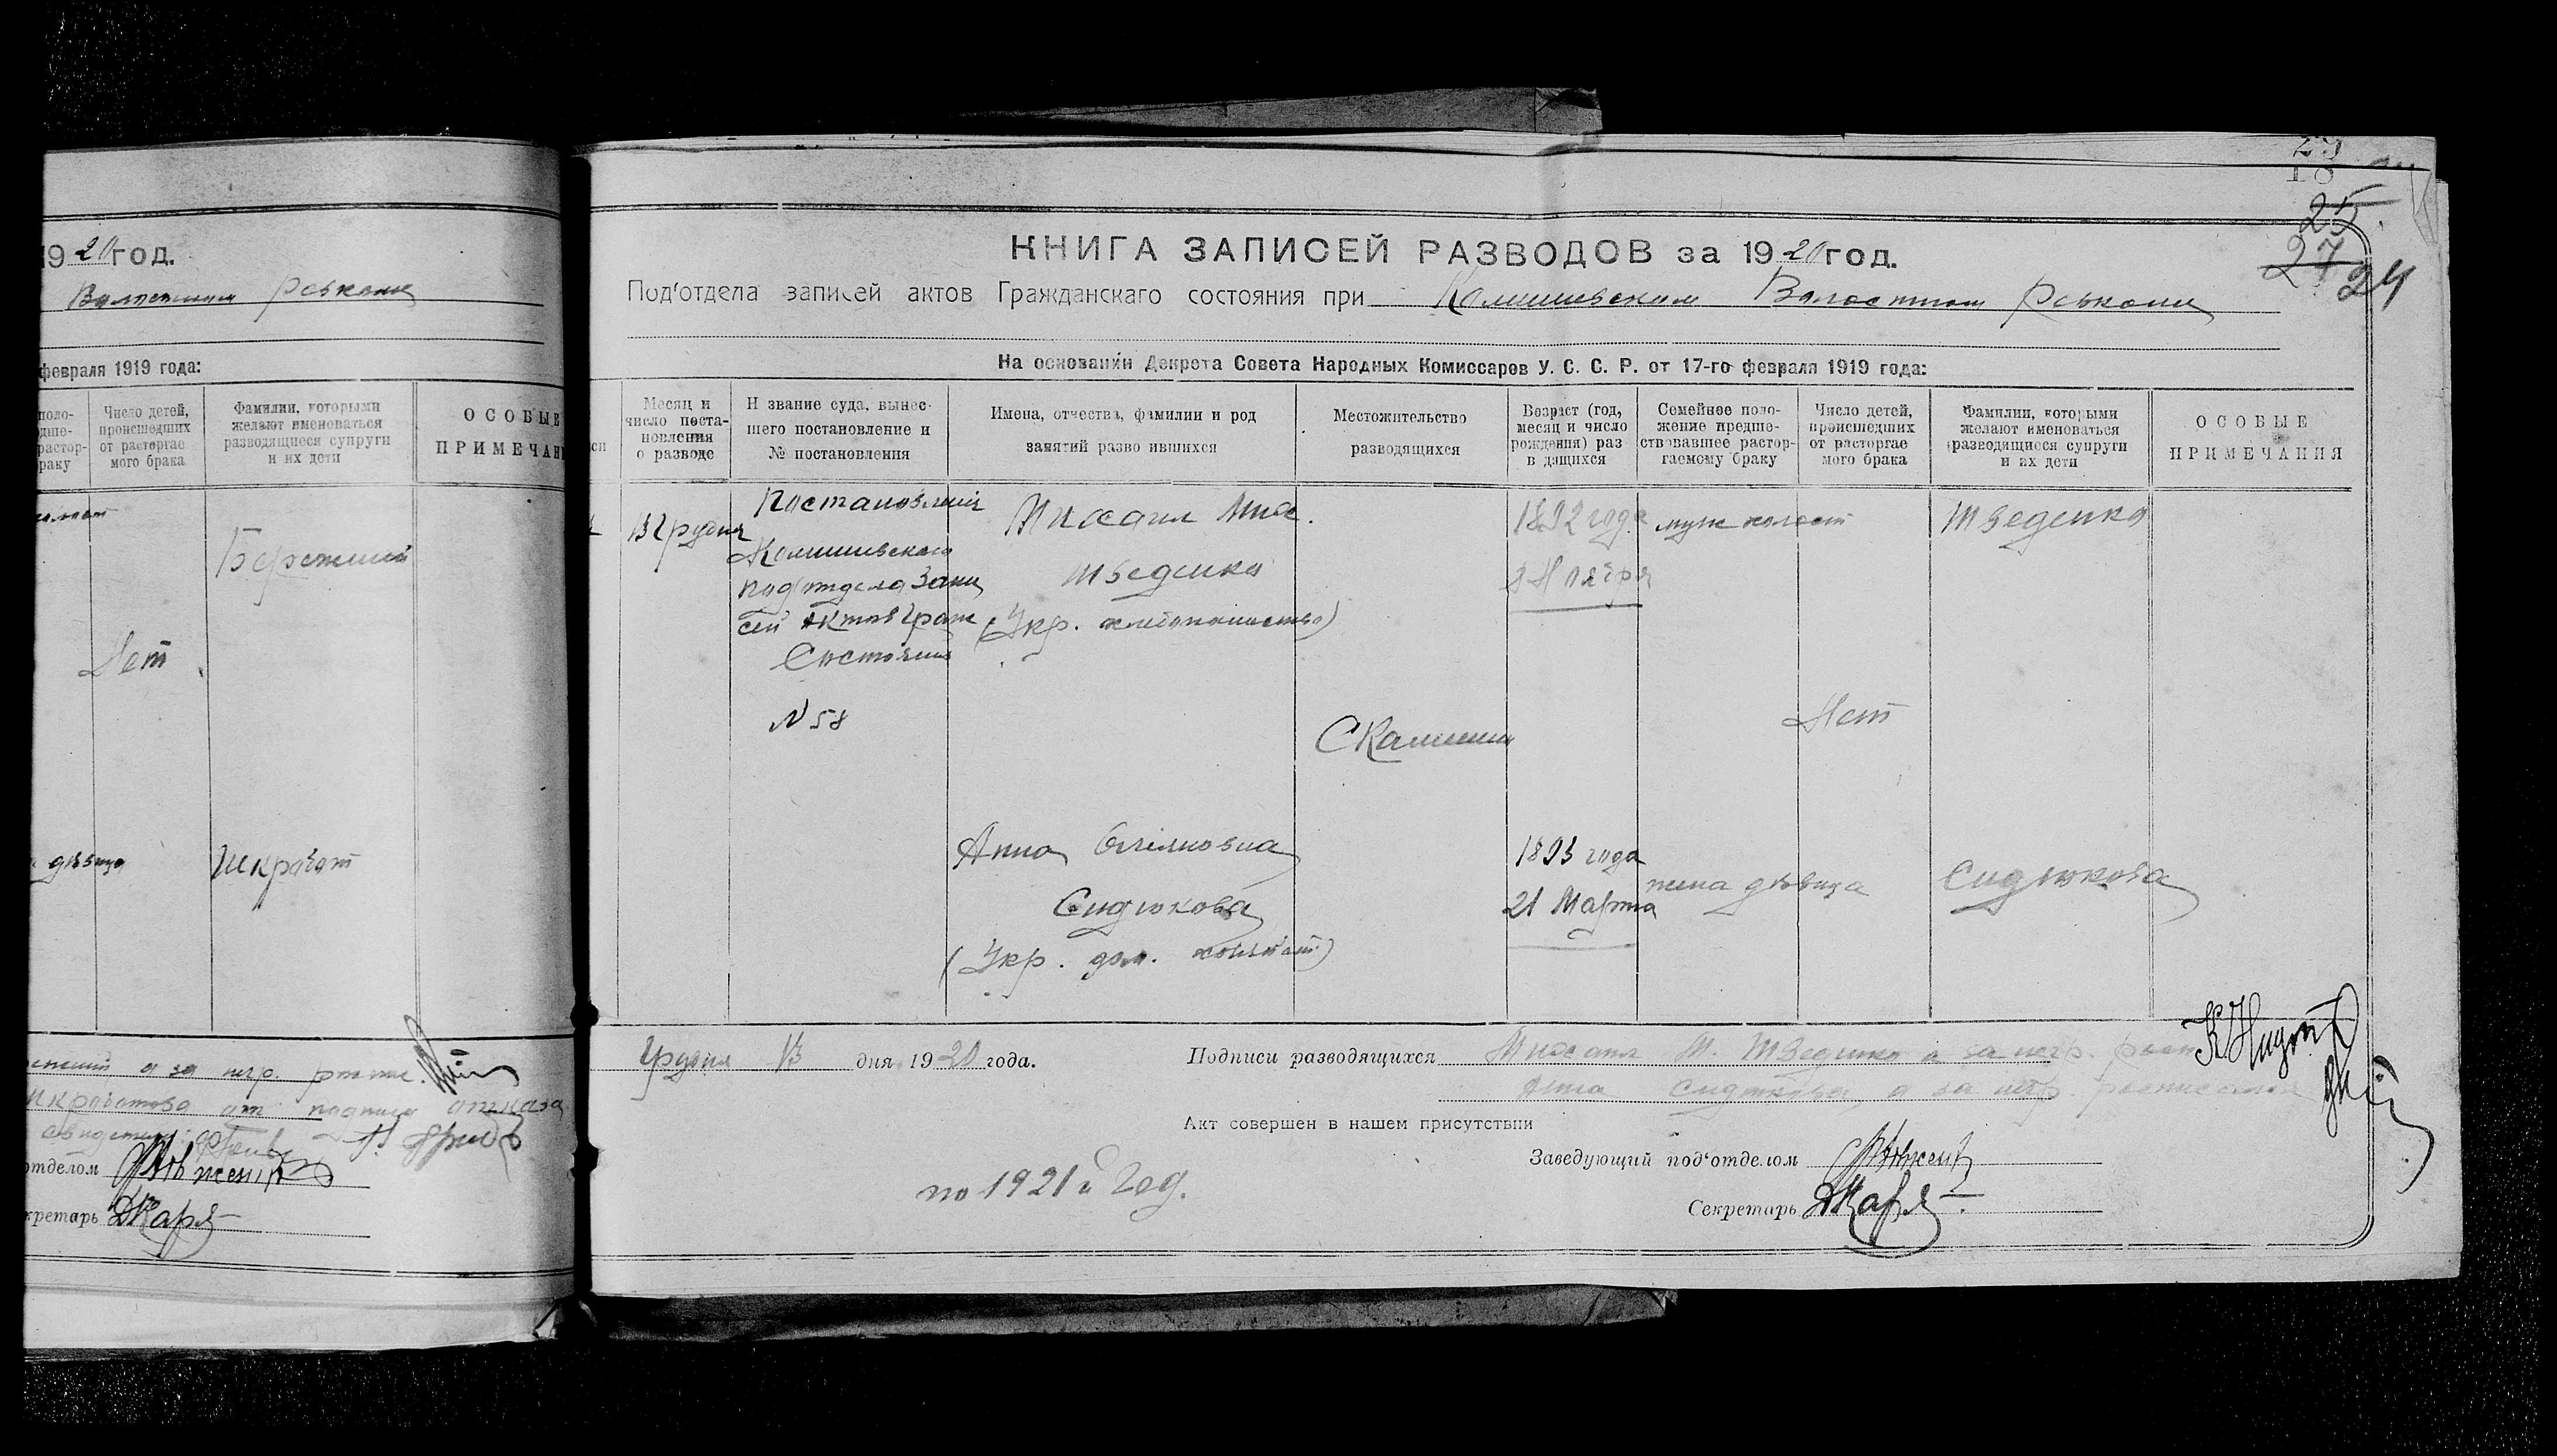 19 20 год.
Волостном Ревкоме
февраля 1919 года:
поло-
дше-
растор-
браку
Число детей,
происшедших
от расторгае
мого брака
Фамилии, которыми
желают именоваться
разводящиеся супруги
и их дети
ОСОБЫЕ
ПРИМЕЧАН
Бережний
Нет
девица
Шкрабат
а за негр.
от подписи отказа
отделом
кретарь
25
27
24
КНИГА ЗАПИСЕЙ РАЗВОДОВ за 1920 год.
Под'отдела записей актов Гражданскаго состояния при Камишевском Волостном Ревкоми
На основании Декрета Совета Народных Комиссаров У. С. С. Р. от 17-го февраля 1919 года:
си
Месяц и
число поста-
новления
о разводе
Н звание суда, вынес-
шего постановление и
№ постановления
Имена, отчества, фамилии и род
занятий разво ившихся
Местожительство
разводящихся
Возраст (год,
месяц и число
рождения) раз
в дящихся
Семейное поло-
жение предше-
ствовавшее растор-
гаемому браку
Число детей,
происшедших
от расторгае
мого брака
Фамилии, которыми
желают именоваться
разводящиеся супруги
и их дети
ОСОБЫЕ
ПРИМЕЧАНИЯ
13 Грудня
Постановления
Камишевского
подотдела Запи
сей Актов Граж
Состояния
N 58
Михаил Мих.
Шведенко
(Укр. хлебопашество)
С Камиши
1892 года
8 Ноября
муж холост
Нет
Шведенко
Анна
Сидюкова
(Укр. дом. хозяйст.)
1893 года
21 Марта
жена девица
Сидюкова
Грудня 13 дня 1920 года.
Подписи разводящихся Михаил М. Шведенко а за негр. росп
Анна Сидюкова, а за негр. росписался
Акт совершен в нашем присутствии
Заведующий под'отделом
по 1921 й Год.
Секретарь